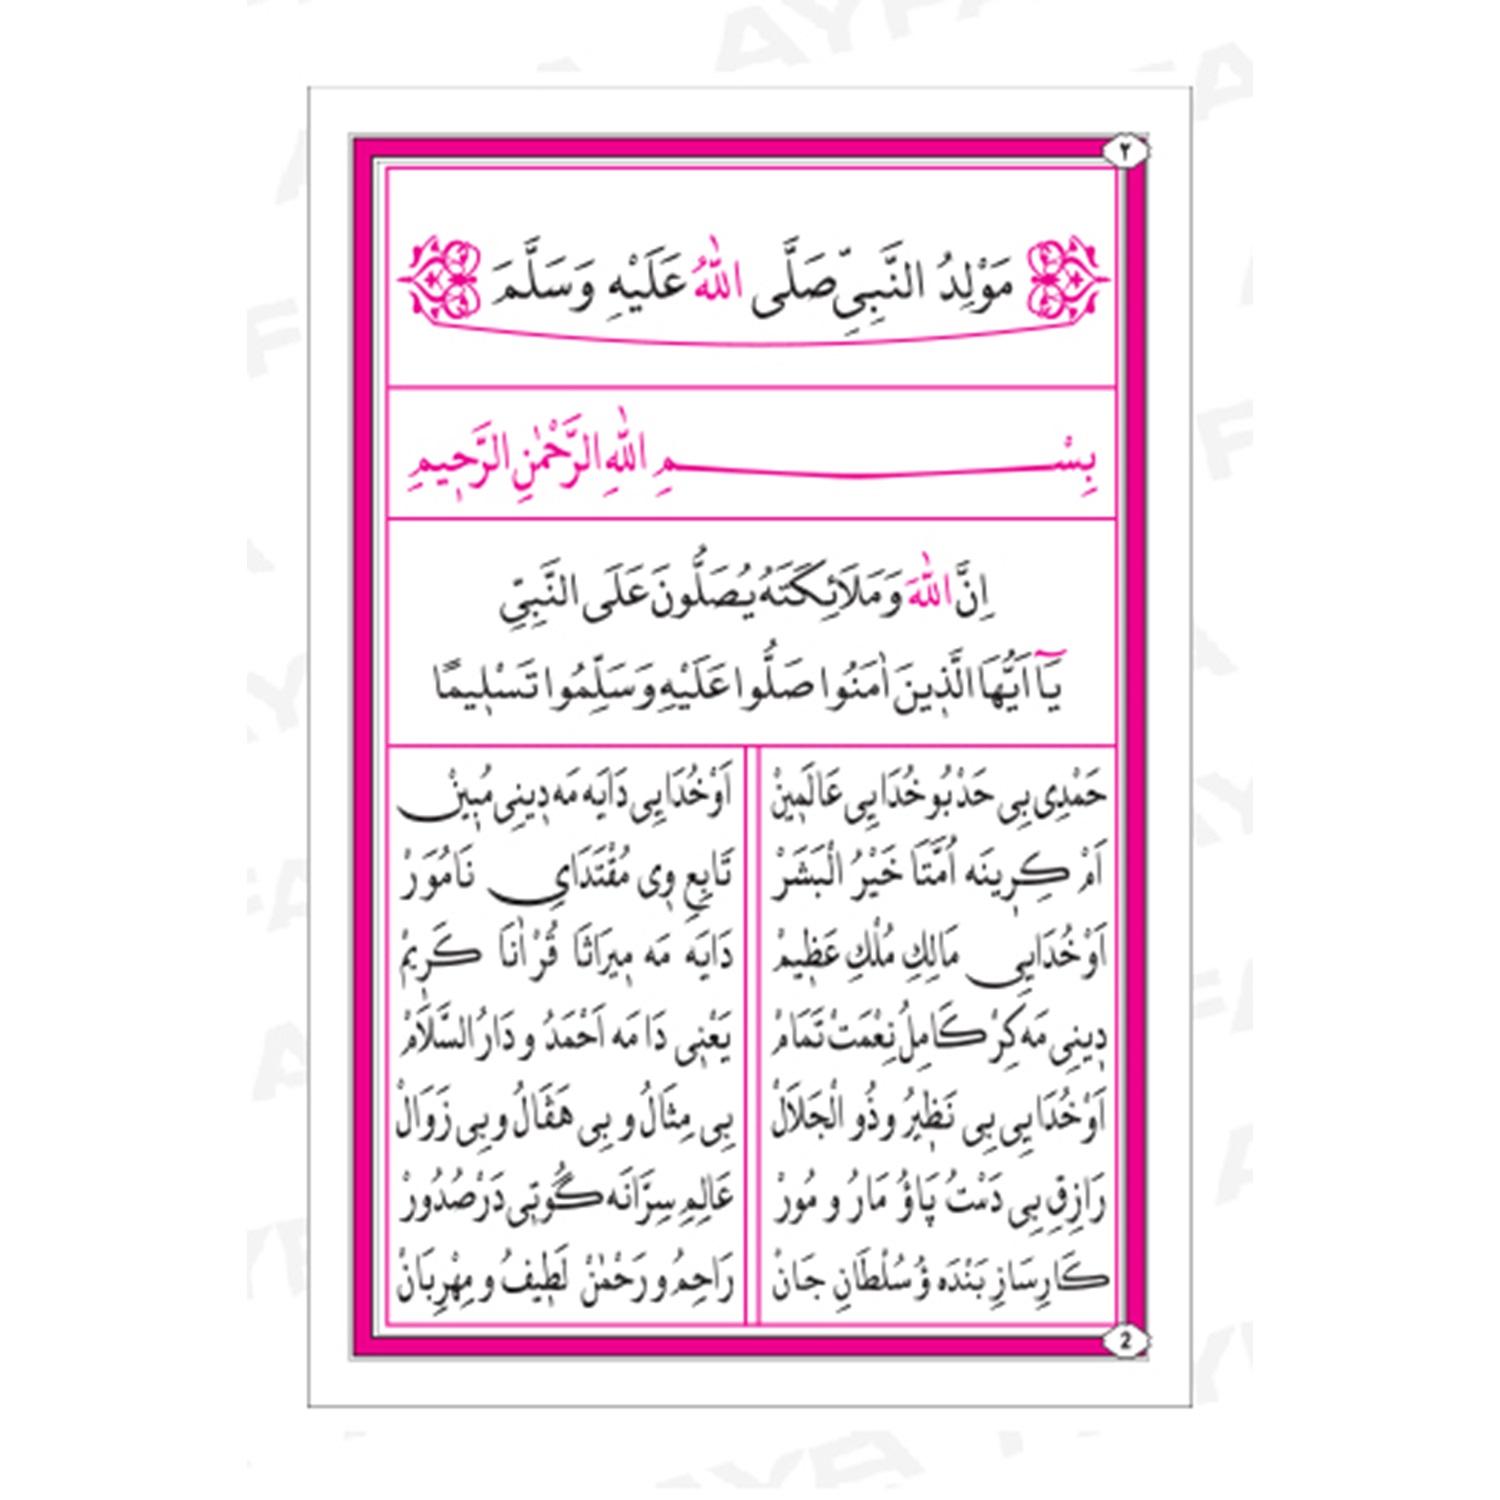 ٢
مَوْلِدُ النَّبِىِّ صَلَّى اللّٰهُ عَلَيْهِ وَسَلَّمَ
بِسْمِ اللّٰهِ الرَّحْمٰنِ الرَّحٖيمِ
اِنَّ اللّٰهَ وَمَلَائِكَتَهُ يُصَلُّونَ عَلَى النَّبِىِّ
يَٓا اَيُّهَا الَّذٖينَ اٰمَنُوا صَلُّوا عَلَيْهِ وَسَلِّمُوا تَسْلٖيمًا
حَمْدِى بِى حَدْ بُو خُدَايِى عَالَمٖينْ اَوْ خُدَايِى دَايَه مَه دٖينِى مُبٖينْ
اَمْ كِرٖينَه اُمَّتَا خَيْرُ الْبَشَرْ تَابِعِ وٖى مُقْتَدَاىِ نَامُوَرْ
اَوْ خُدَايِى مَالِكِ مُلْكِ عَظٖيمْ دَايَه مَه مٖيرَاثَا قُرْاٰنَا كَرٖيمْ
دٖينِى مَه كِرْ كَامِلُ نِعْمَتْ تَمَامْ يَعْنٖى دَا مَه اَحْمَدُ و دَارُ السَّلَامْ
اَوْ خُدَايِى بِى نَظٖيرُ و ذُو الْجَلَالْ بِى مِثَالُ و بِى هَڤَالُ و بِى زَوَالْ
رَازِقِ بِى دَسْتُ پَاؤُ مَارُ و مُورْ عَالِمِ سِرَّانَه گُوتِى دَرْ صُدُورْ
كَارِسَازِ بَنْدَه ؤُ سُلْطَانِ جَانْ رَاحِمُ و رَحْمٰنْ لَطٖيفُ و مِهْرِبَانْ
2
AYFA